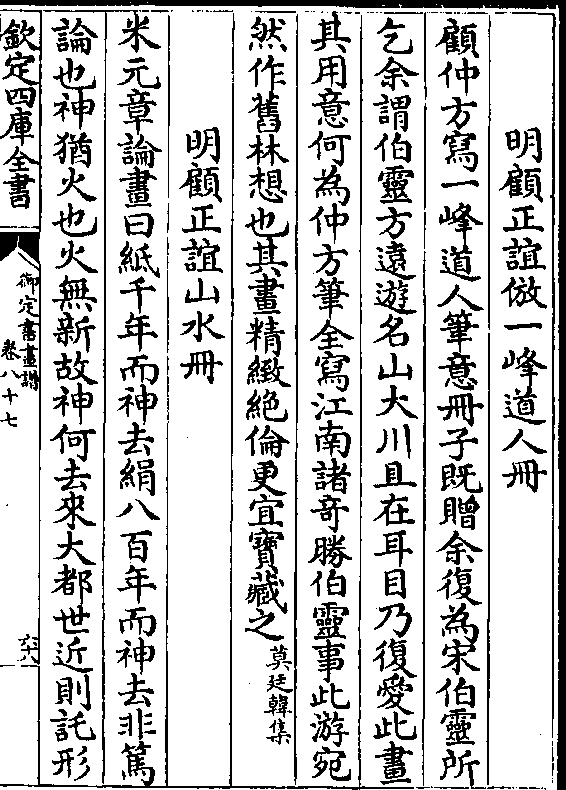 明顧正誼倣一峰道人冊
顧仲方寫一峰道人筆意冊子既贈余復為宋伯靈所
乞余謂伯靈方遠遊名山大川且在耳目乃復愛此畫
其用意何為仲方筆全寫江南諸竒勝伯靈事此游宛
然作舊林想也其畫精緻絶倫更宜寶藏之莫廷韓集
明顧正誼山水冊
米元章論畫曰紙千年而神去絹八百年而神去非篤
論也神猶火也火無新故神何去來大都世近則託形
欽定四庫全書
御定書畫譜
卷八十七
六十八